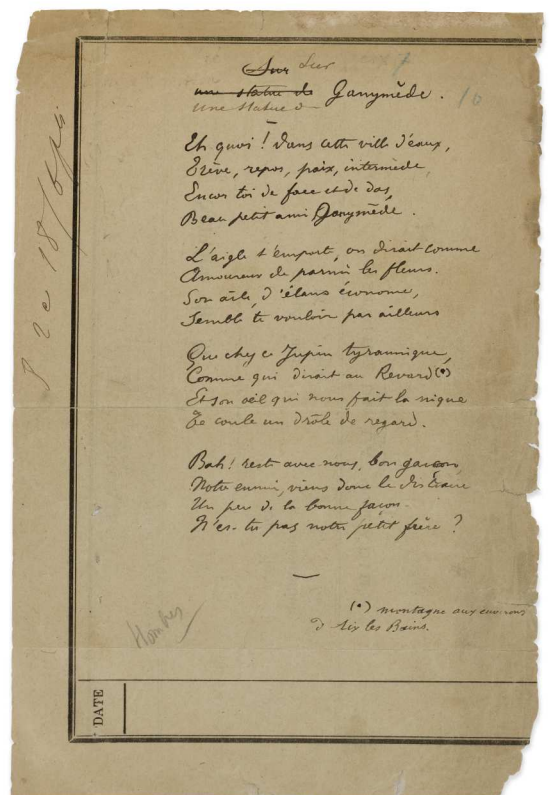 Sur Sur
une statue de Ganymède. 10
une statue d
Eh quoi ! Dans cette ville d'eaux,
Trève, repos, paix, intermède,
Encor toi de face et de dos,
Beau petit ami Ganymède.
L'aigle t'emporte, on dirait comme
Amoureux de parmi les fleurs.
Son aile, d'élans économe,
Semble te vouloir par ailleurs
Que chez ce Jupin tyrannique,
Comme qui dirait au Revard (*)
Et son œil qui nous fait la nique
Te coule un drôle de regard.
Bah ! reste avec nous, bon garçon,
Notre ennui, viens donc le distraire
Un peu de la bonne façon.
N'es-tu pas notre petit frère ?
(*) montagne aux environs
d'Aix les Bains.
Hombres
DATE